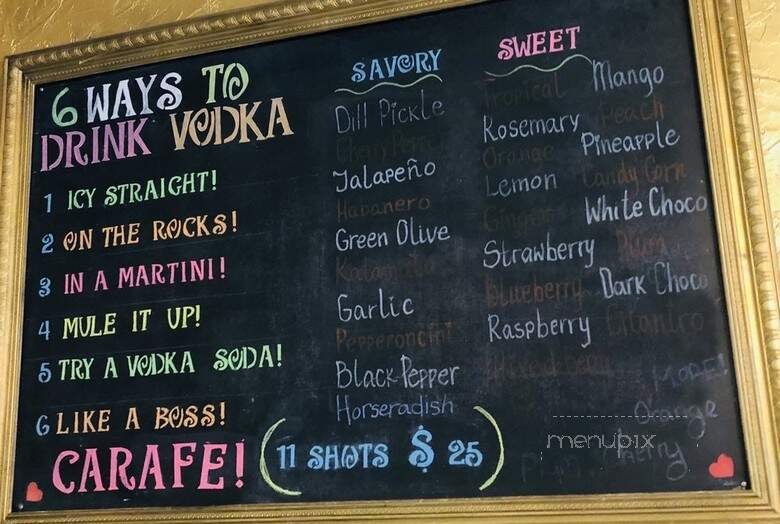 6 WAYS TO
DRINK VODKA
1 ICY STRAIGHT!
2 ON THE ROCKS!
3 IN A MARTINI!
4 MULE IT UP!
5 TRY A VODKA SODA!
6 LIKE A BOSS!
CARAFE! (11 SHOTS $ 25)
SAVORY
Dill Pickle
Jalapeño
Habanero
Green Olive
Kalamata
Garlic
Pepperoncini
Black Pepper
Horseradish
SWEET
Tropical
Rosemary
Orange
Lemon
Ginger
Strawberry
Blueberry
Raspberry
Mango
Peach
Pineapple
Candy Corn
White Choco
Plum
Dark Choco
Cilantro
MORE!
Orange
menupix